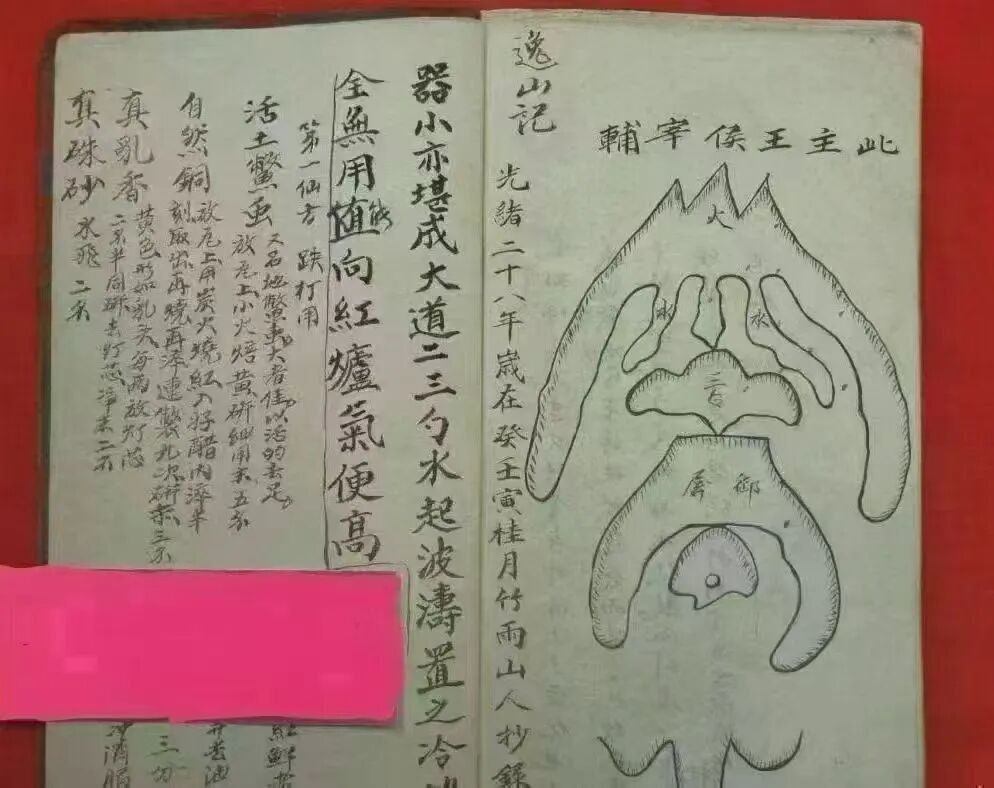 此主王侯宰輔
火
水
水
三台
御屏
逸山記
光緒二十八年歲在癸壬寅桂月竹雨山人抄錄
器小亦堪成大道二三勺水起波濤置之冷
全無用值能向紅爐氣便高
第一仙方 跌打用
活土鱉虫
又名地鱉虫大者佳以活的去足
放瓦上小火焙黃研細用末五分
自然銅
放瓦上用炭火燒紅入好醋內淬半
刻取出再燒再淬連製九次研末三分
真乳香
黃色形如乳头每兩放灯芯
二分半同研去灯芯淨末二分
真珠砂 水飛二分
三分